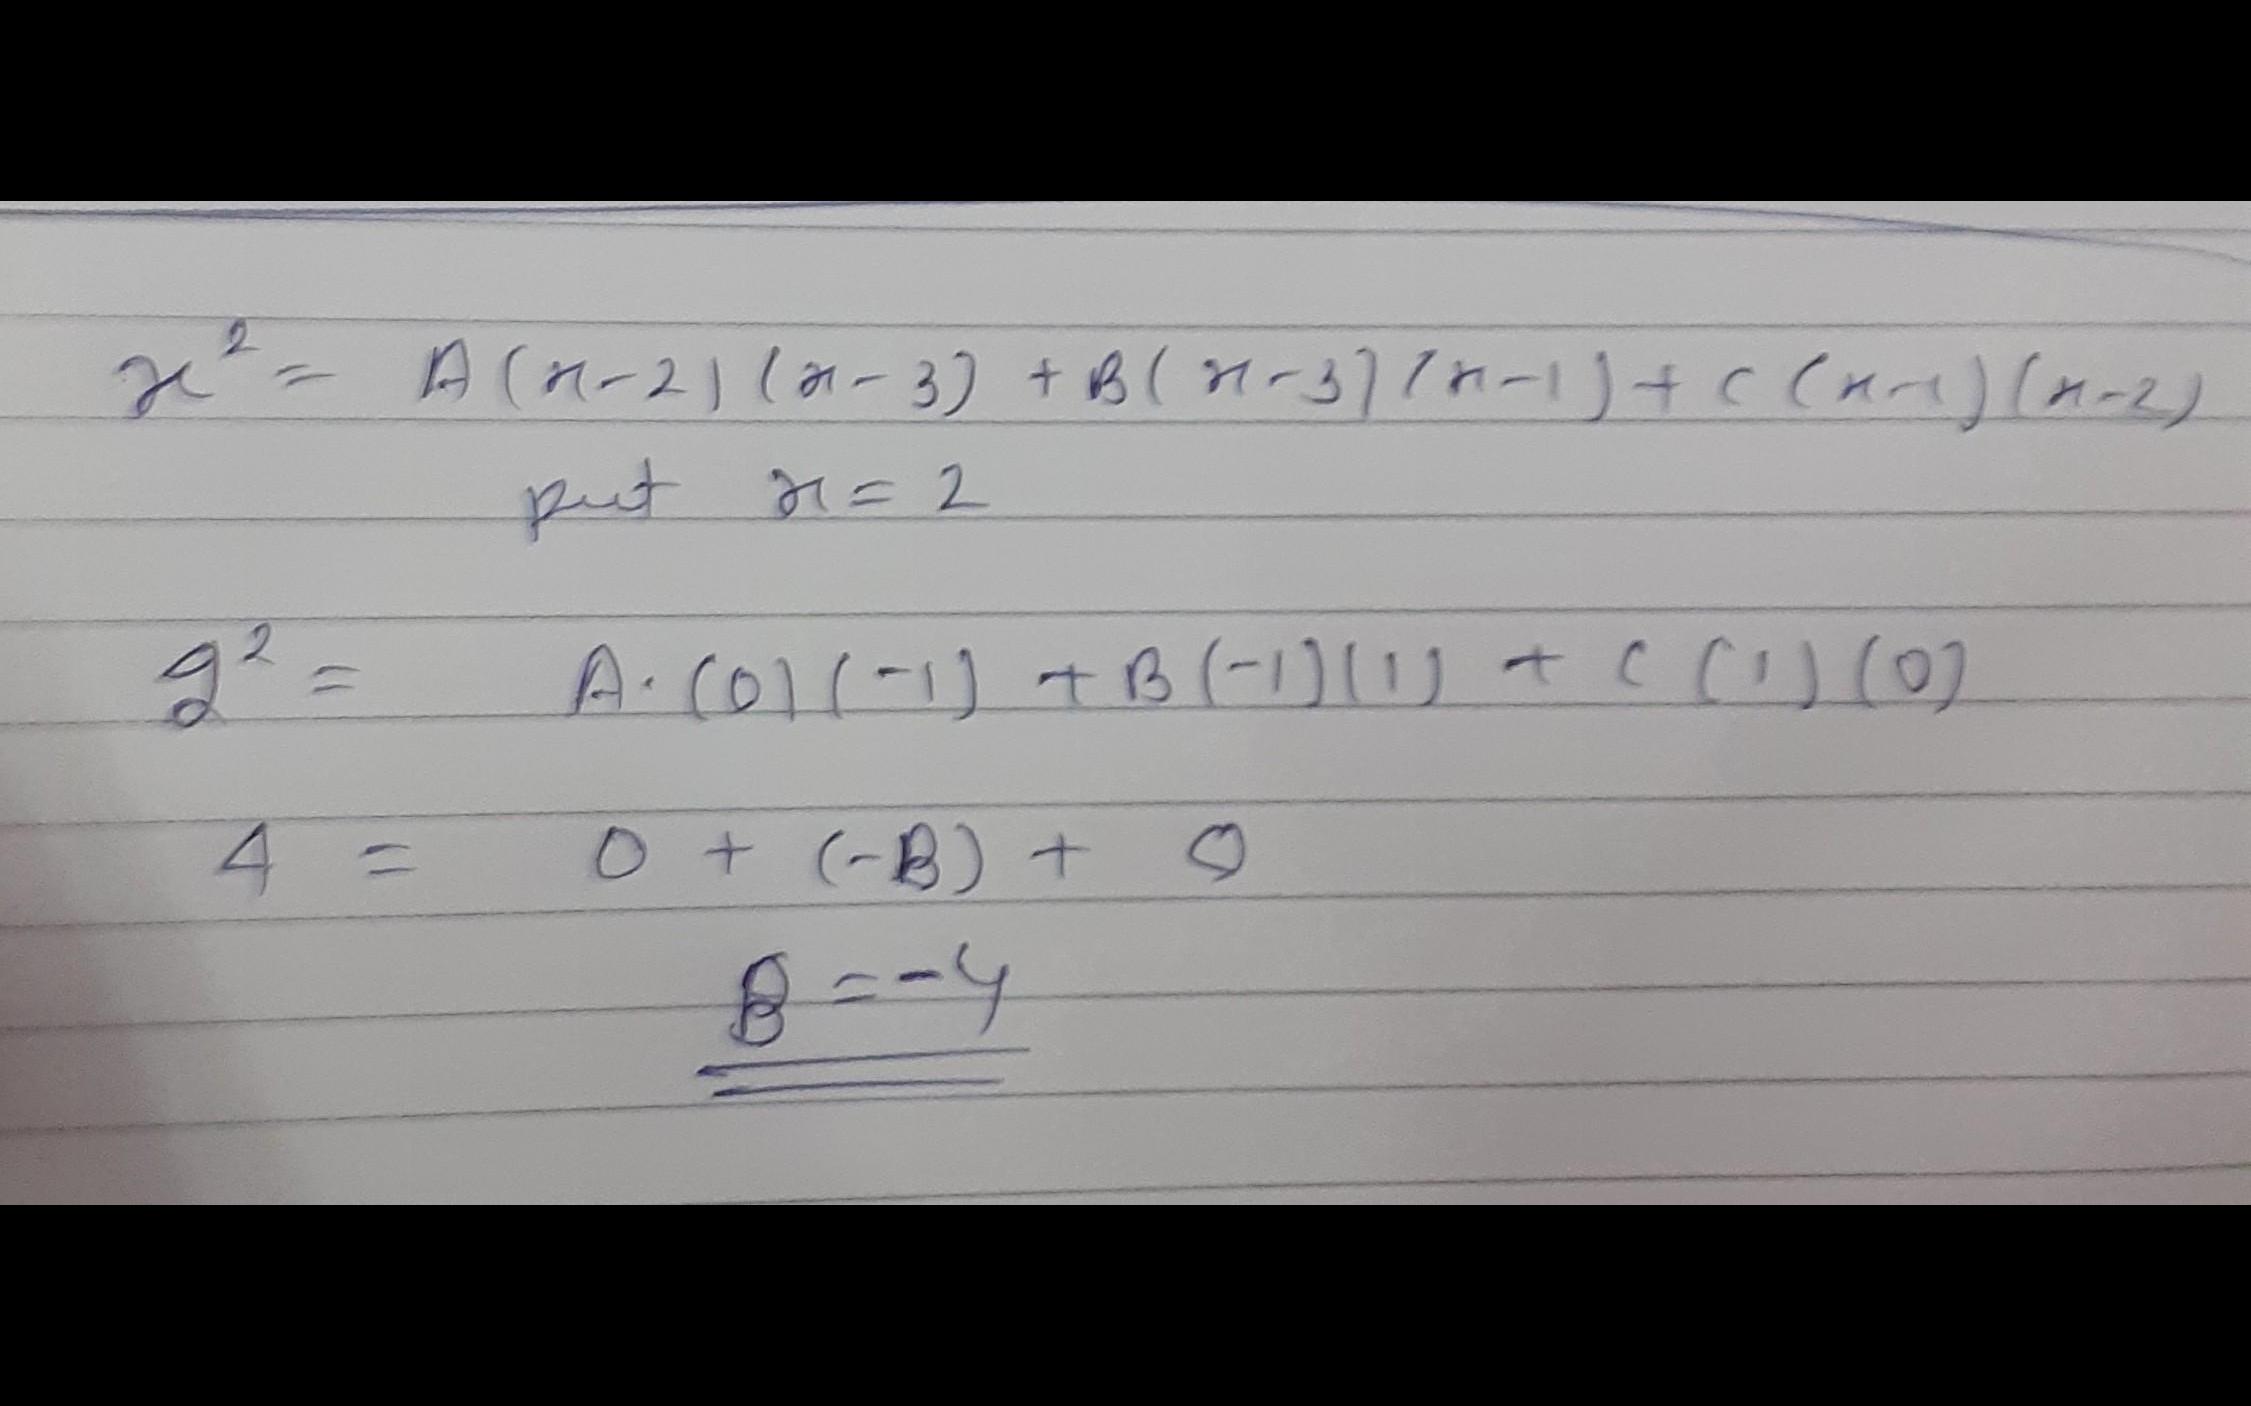 x² = A(x-2)(x-3) + B(x-3)(x-1) + C(x-1)(x-2)
put x = 2
2² = A·(0)(-1) + B(-1)(1) + C(1)(0)
4 = 0 + (-B) + 0
B = -4